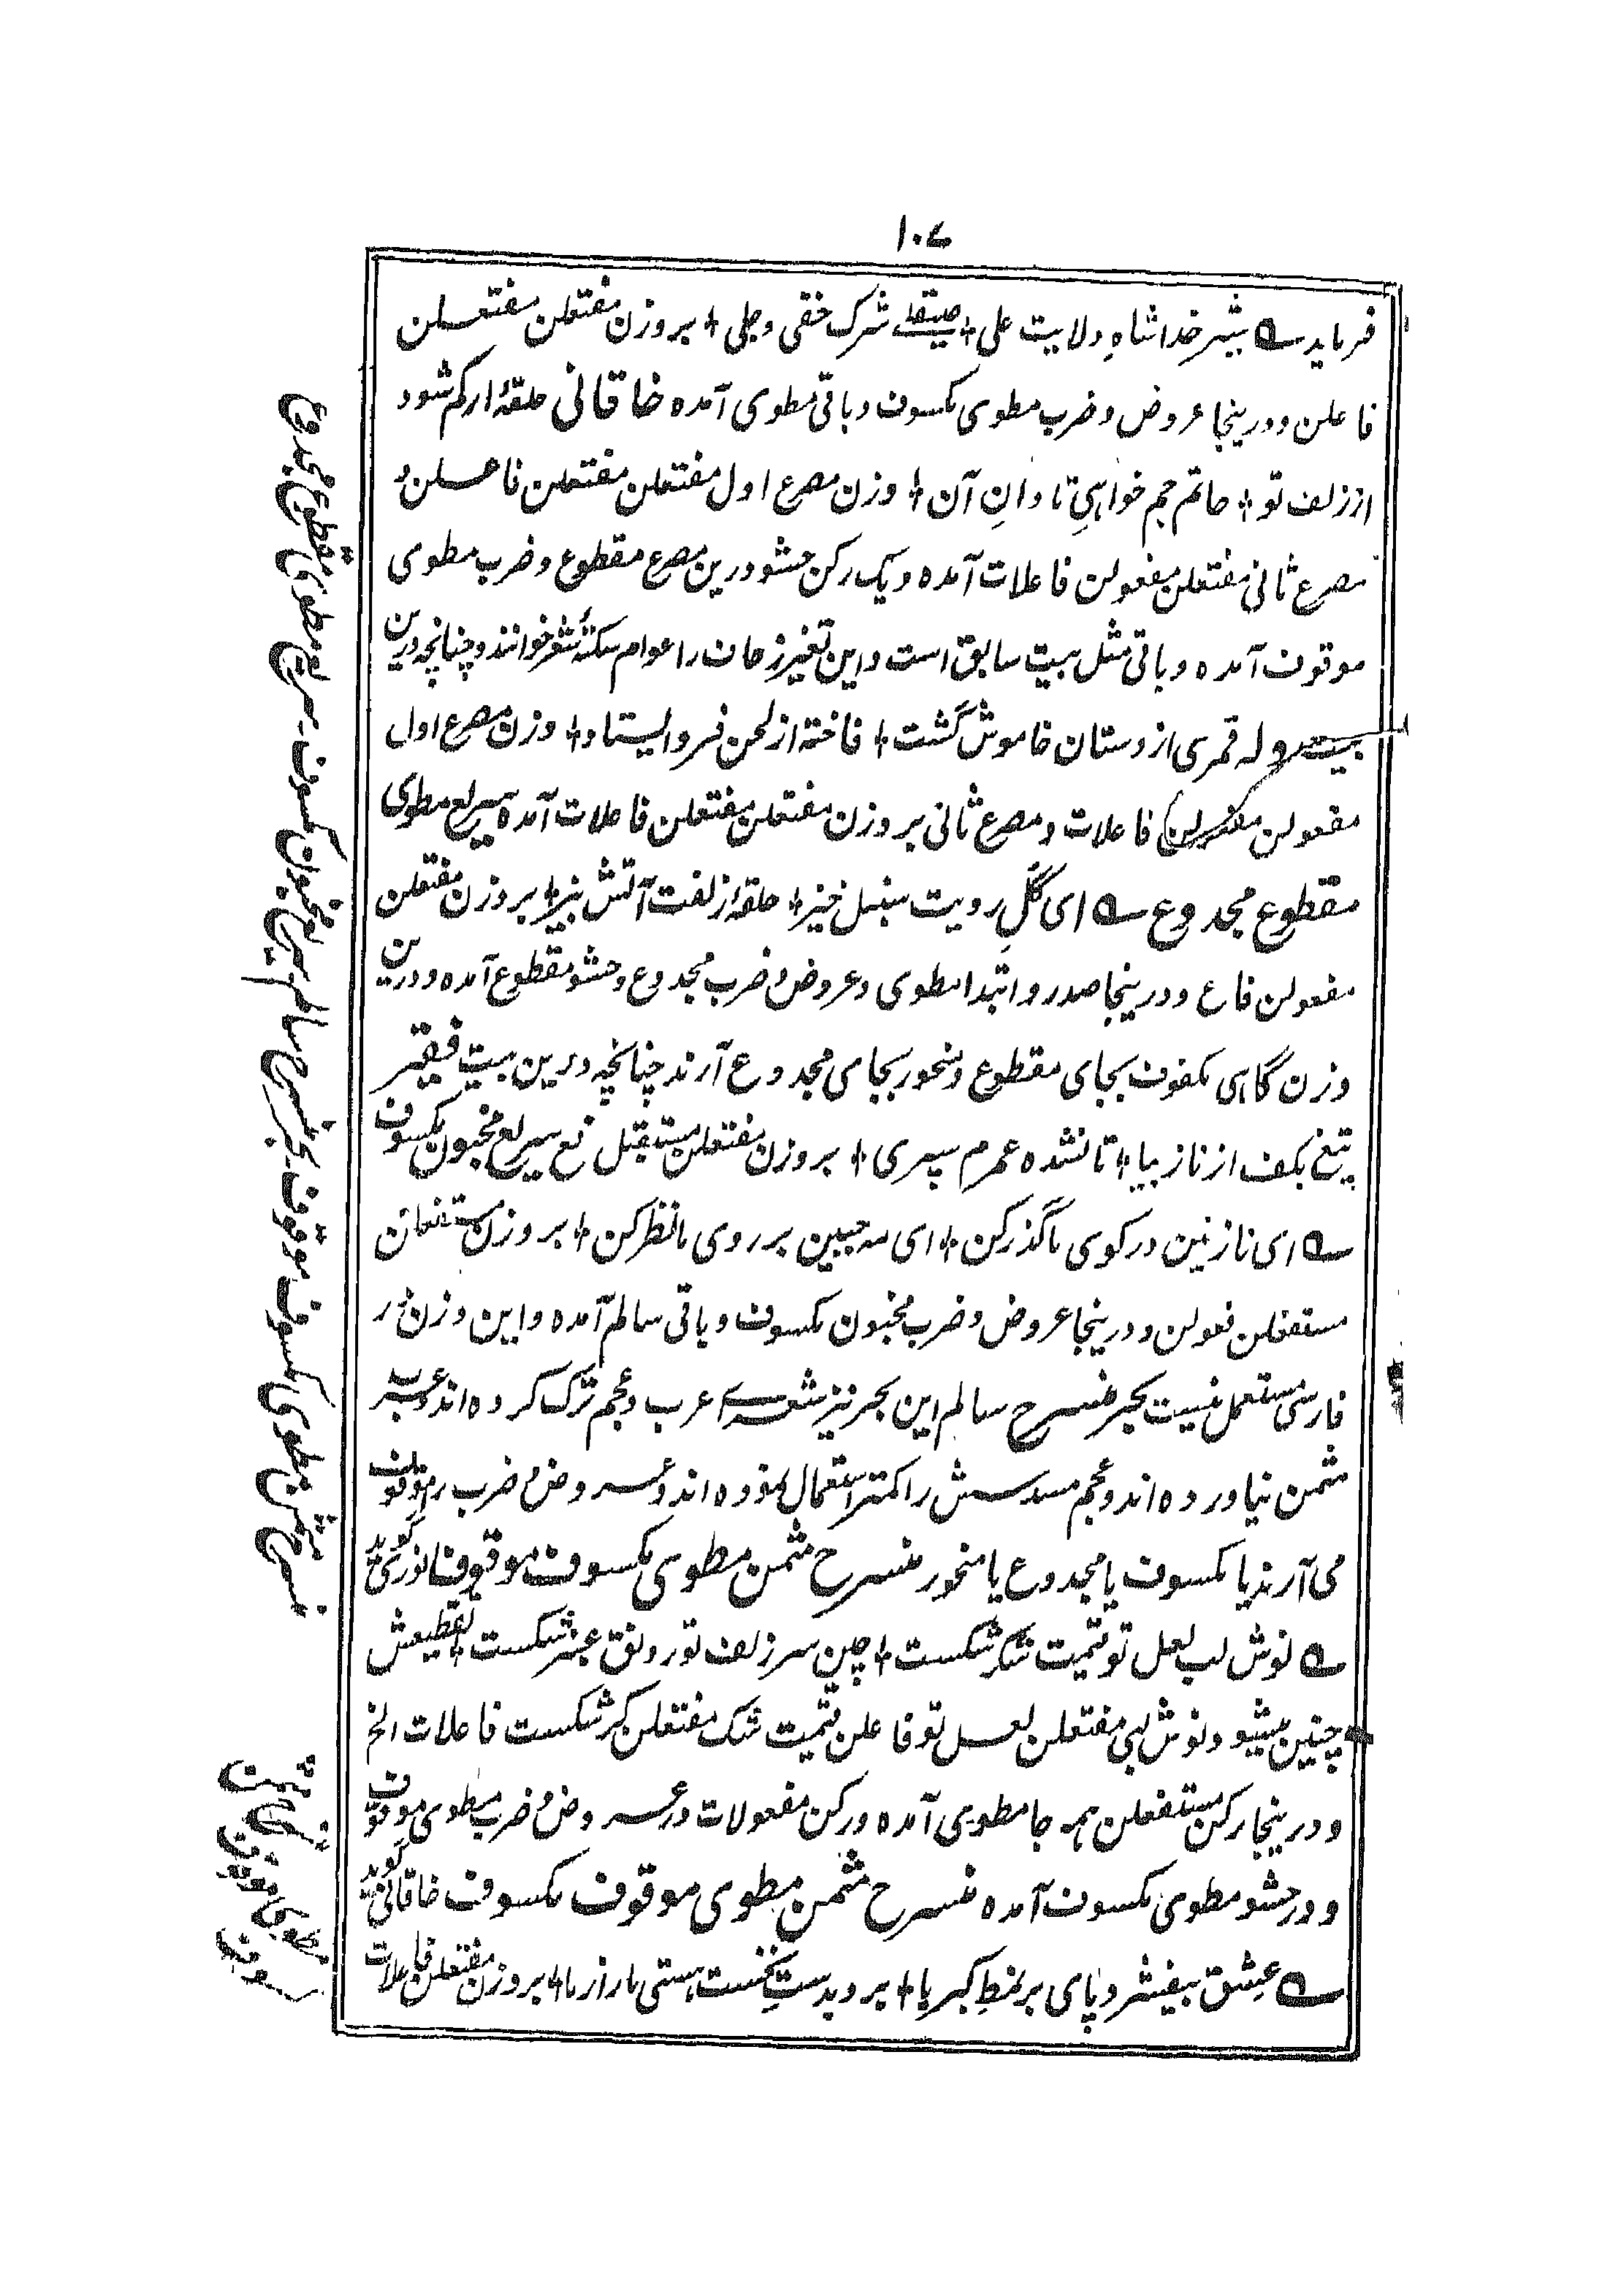 ۱۰۷
فرماید شیر خدا شاہِ ولایت علی صیقلے شرک خفی و جلی بر وزن مفتعلن مفتعلن
فاعلن و درینجا عروض و ضرب مطوی مکسوف و باقی مطوی آمدہ خاقانی حلقۂ ار کم شود
از زلف تو خاتم جم خواہیِ تاوانِ آن وزن مصرع اول مفتعلن مفتعلن فاعلن و
مصرع ثانی مفتعلن مفعولن فاعلات آمدہ و یک رکن حشو درین مصرع مقطوع و ضرب مطوی
موقوف آمدہ و باقی مثل بیت سابق است و این تغیر زحاف را عوام سکتۂ شعر خوانند و چنانچہ درین
بیت ولہ قمری از دستان خاموش گشت فاختہ از لحن فرو ایستاد وزن مصرع اول
مفعولن مفعولن فاعلات و مصرع ثانی بر وزن مفتعلن مفتعلن فاعلات آمدہ سریع مطوی
مقطوع مجدوع ای گلِ رویت سنبل خیز حلقۂ زلفت آتش بیز بر وزن مفتعلن
مفعولن فاع و درینجا صدر و ابتدا مطوی و عروض و ضرب مجدوع و حشو مقطوع آمدہ و درین
وزن گاہی مکفوف بجای مقطوع و منحور بجای مجدوع آرند چنانچہ درین بیت فیقیر
تیغ بکف از ناز بیا تا نشدہ عمرم سپری بر وزن مفتعلن مستفعل فع سریع مخبون مکسوف
ای نازنین در کوی ما گذر کن ای مہ جبین بر روی ما نظر کن بر وزن مستفعلن
مستفعلن فعولن و درینجا عروض و ضرب مخبون مکسوف و باقی سالم آمدہ و این وزن در
فارسی مستعمل نیست بحر منسرح سالم این بحر نیز شعرای عرب و عجم ترک کردہ اند و عرب
مثمن نیاوردہ اند و عجم مسدسش را کمتر استعمال نمودہ اند و عروض و ضرب را موقوف
می آرند یا مکسوف یا مجدوع یا منحور منسرح مثمن مطوی مکسوف موقوف انوری گوید
نوش لب لعل تو قیمت شکر شکست چین سر زلف تو رونق عنبر شکست تقطیعش
چنین میشود نوش لبی مفتعلن لعل تو فاعلن قیمت شک مفتعلن کر شکست فاعلات الخ
و درینجا رکن مستفعلن ہمہ جا مطوی آمدہ و رکن مفعولات در عروض و ضرب مطوی موقوف
و در حشو مطوی مکسوف آمدہ منسرح مثمن مطوی موقوف مکسوف خاقانی گوید
عشق بیفشرد پای بر نمطِ کبریا برد بدستِ نخست ہستی ما را ز ما بر وزن مفتعلن فاعلات
سریع مطوی مقطوع مجدوع
سریع مخبون مکسوف
بحر منسرح سالم
منسرح مثمن مطوی مکسوف موقوف
منسرح مثمن مطوی موقوف مکسوف